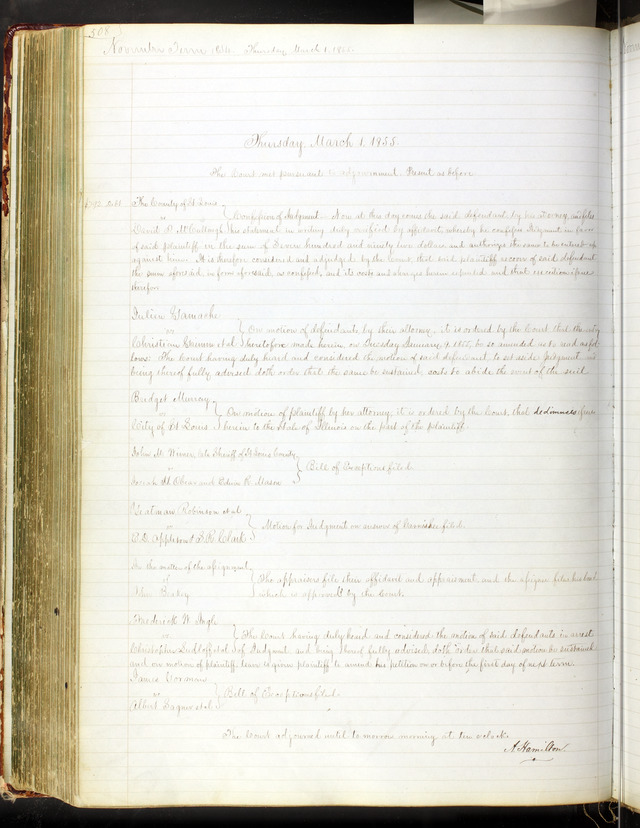 508
November Term 1854. Thursday March 1, 1855.
Thursday, March 1, 1855.
The Court met pursuant to adjournment. Present as before.
The County of St Louis
vs Confession of Judgment. Now at this day comes the said defendant by his Attorney, and files
David D. McCullough his statement in writing duly verified by affidavit whereby he confesses Judgment in favor
of said plaintiff in the sum of Seven hundred and ninety two dollars and authorizes the same to be entered up
against him. It is therefore considered and adjudged by the Court, that said plaintiff recover of said defendant
the sum aforesaid, in form aforesaid, so confessed, and its costs and charges herein expended and that execution issue
therefor.
Julien Gamache
vs On motion of defendants by their attorney, it is ordered by the Court that the entry
Christian et al heretofore made herein, on Tuesday January 9, 1855, be so amended as to read as fol-
lows: The Court having duly heard and considered the motion of said defendant to set aside Judgment, and
being thereof fully advised doth order that the same be sustained, costs to abide the event of the suit
Bridget Murray
vs On motion of plaintiff by her attorney it is ordered by the Court, that dedimus issue
City of St Louis. herein to the State of Illinois on the part of the plaintiff.
John M. Wimer late Sheriff of St Louis County
vs Bill of Exceptions filed.
and Edwin R. Mason
Yeatman Robinson et al
vs Motion for Judgment on answer of Garnishee filed.
Clark
In the matter of the assignment
of The appraisers file their affidavit and appraisement and the assignee files his bond
which is approved by the Court.
Frederick W.
vs The Court having duly heard and considered the motion of said defendants in arrest
Christopher Ludloff et al of Judgment and being thereof fully advised doth order that said motion be sustained
and on motion of plaintiff leave is given plaintiff to amend his petition on or before the first day of next term.
James
vs Bill of Exceptions filed.
Albert et al
The Court adjourned until to morrow morning at ten oclock.
A. Hamilton.